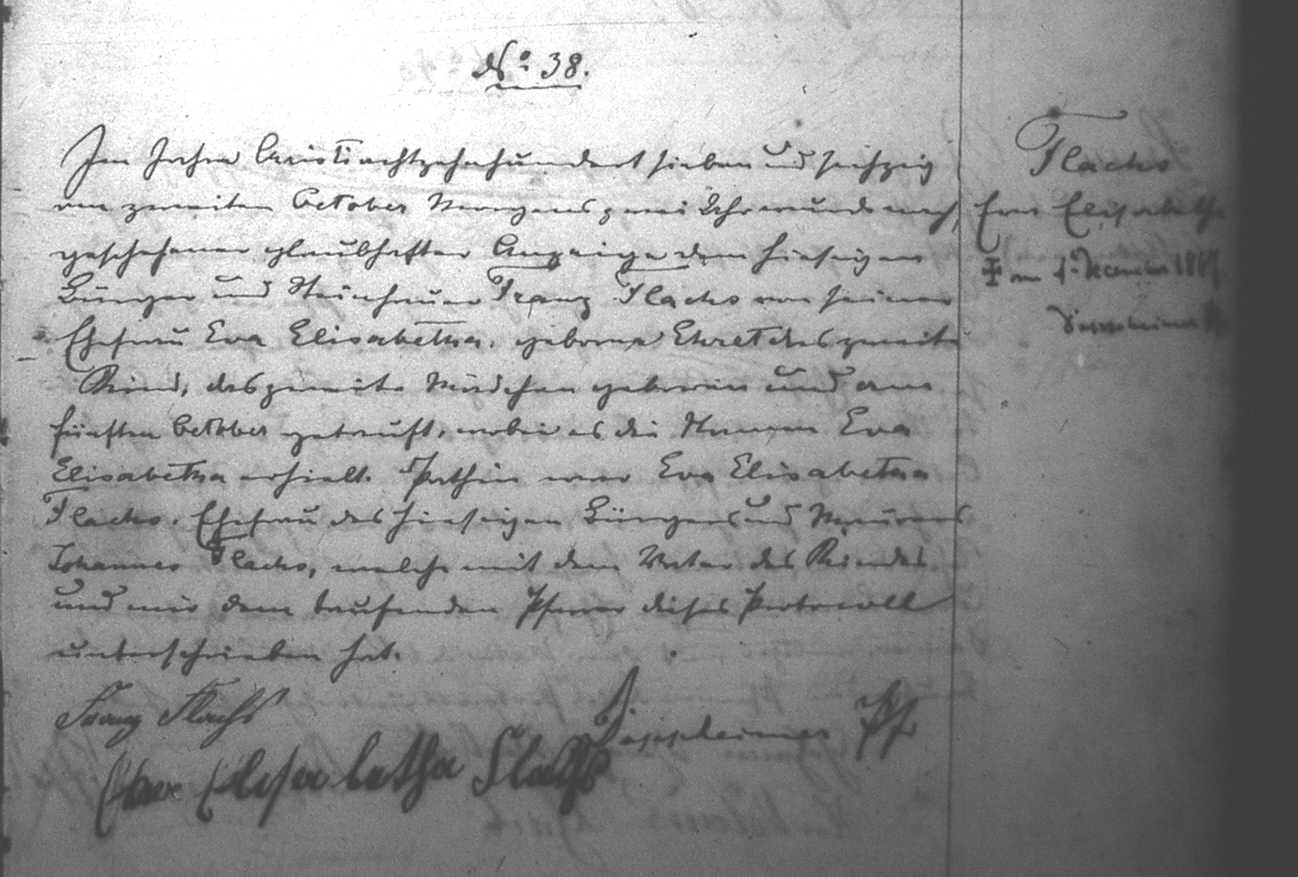 No. 38.
Im Jahre Christi achtzehnhundert sieben und sechzig
am zweiten October Morgens zwei Uhr wurde nach
geschehener glaubhafter Anzeige dem hiesigen
Bürger und Steinhauer Franz Flachs von seiner
Ehefrau Eva Elisabetha, geborne Ehret das zweite
Kind, das zweite Mädchen geboren und am
fünften October getauft, wobei es die Namen Eva
Elisabetha erhielt. Pathin war Eva Elisabetha
Flachs, Ehefrau des hiesigen Bürgers und Maurers
Johannes Flachs, welche mit dem Vater des Kindes
und mir dem taufenden Pfarrer dieses Protocoll
unterschrieben hat.
Franz Flachs
Pf
Eva Elisabetha Flachs
Flachs
Eva Elisabetha
am December